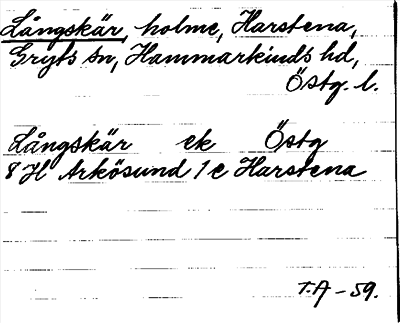 Långskär, holme, Harstena,
Gryts sn, Hammarkinds hd,
Östg. l.
Långskär ek Östg
8 H Arkösund 1 c Harstena
T.A -59.